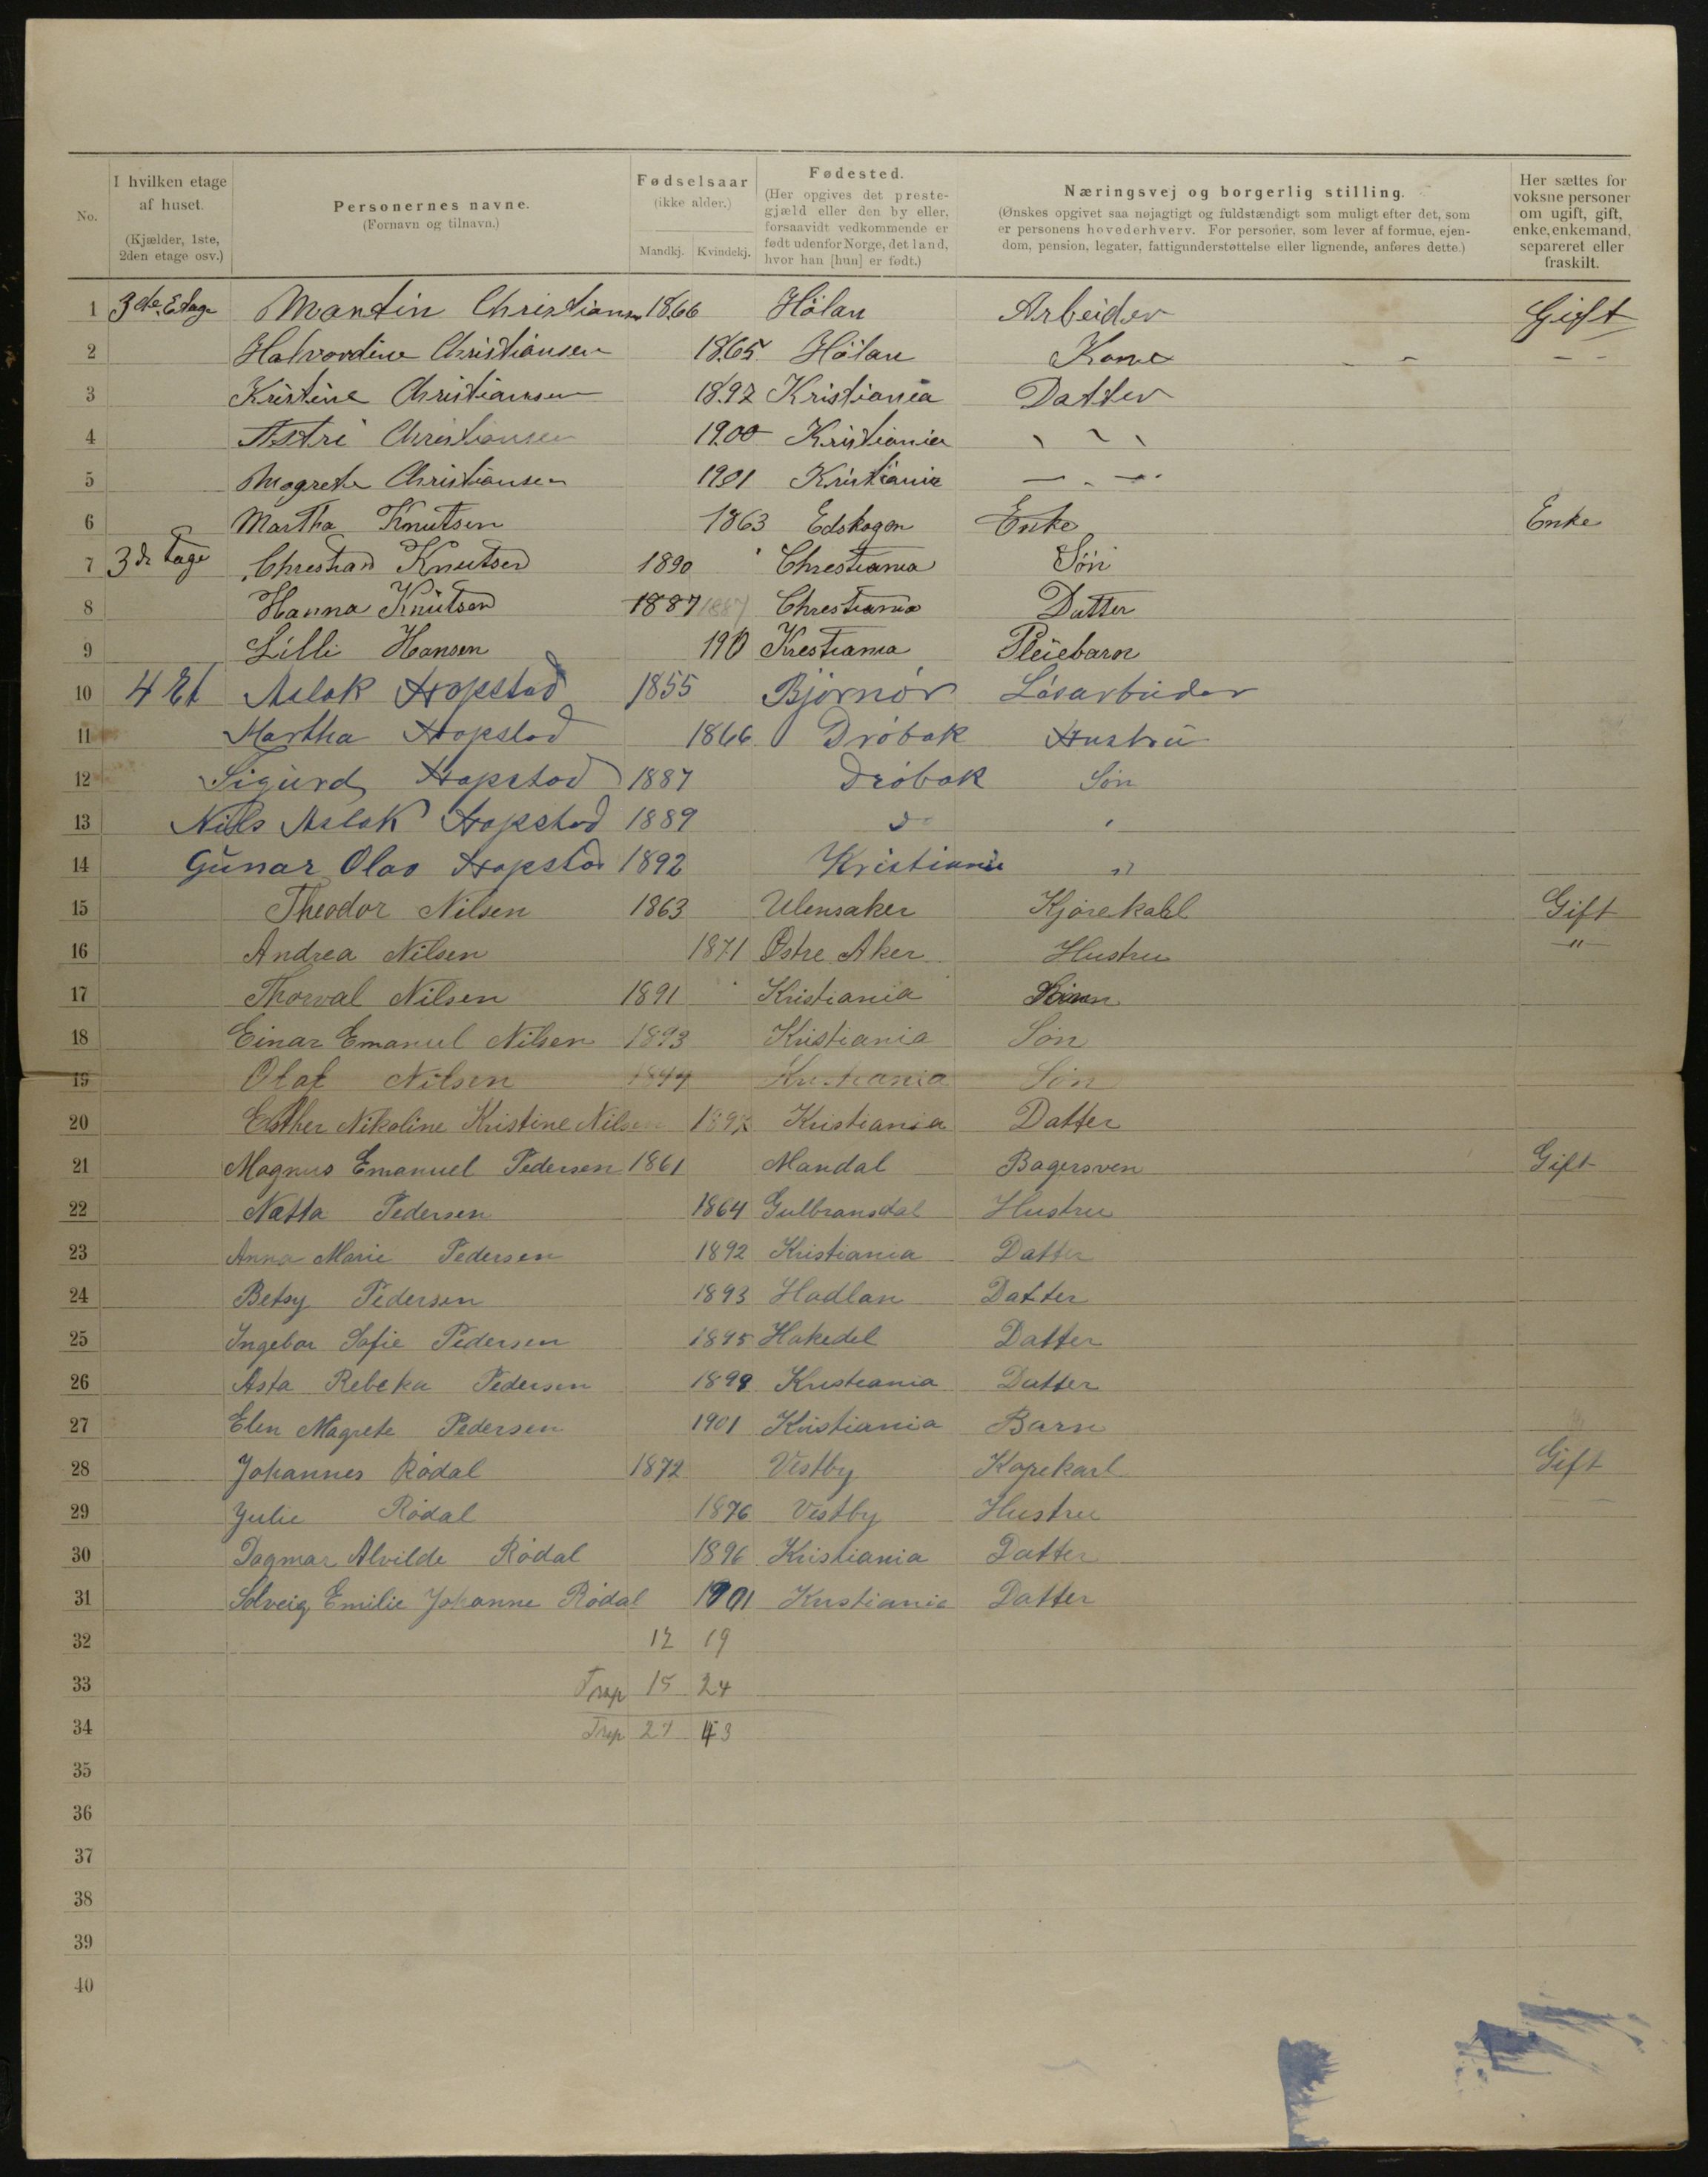 No.
I hvilken etage af huset. (Kjælder, 1ste, 2den etage osv.)
Personernes navne. (Fornavn og tilnavn.)
Fødselsaar (ikke alder.) Mandkj. Kvindekj.
Fødested. (Her opgives det prestegjæld eller den by eller, forsaavidt vedkommende er født udenfor Norge, det land, hvor han [hun] er født.)
Næringsvej og borgerlig stilling. (Ønskes opgivet saa nøjagtigt og fuldstændigt som muligt efter det, som er personens hovederhverv. For personer, som lever af formue, ejendom, pension, legater, fattigunderstøttelse eller lignende, anføres dette.)
Her sættes for voksne personer om ugift, gift, enke, enkemand, separeret eller fraskilt.
1 3die Etage Martin Christiansen 1866 Hölan Arbeider Gift
2 Halvordine Christiansen 1865 Hölan Kone - - -
3 Kristine Christiansen 1897 Kristiania Datter
4 Astri Christiansen 1900 Kristiania " "
5 Magrete Christiansen 1901 Kristiania - " -
6 Martha Knutsen 1863 Edskogen Enke Enke
7 3de Tage Chrestian Knutsen 1890 Chrestiania Søn
8 Hanna Knutsen 1887 1887 Chrestiania Datter
9 Lilli Hansen 190 Krestiania Pleiebarn
10 4 Et Aslak Hopstad 1855 Bjørnør Løsarbeider
11 Martha Hopstad 1866 Drøbak Hustru
12 Sigurd Hopstad 1887 Drøbak Søn
13 Nils Aslak Hopstad 1889 " "
14 Gunar Olav Hopstad 1892 Kristiania "
15 Theodor Nilsen 1863 Ulensaker Kjørekahl Gift
16 Andrea Nilsen 1871 Østre Aker Hustru "
17 Thorval Nilsen 1891 Kristiania
18 Einar Emanuel Nilsen 1893 Kristiania Søn
19 Olaf Nilsen Kristiania Søn
20 Esther Nikoline Kristine Nilsen 1897 Kristiania Datter
21 Magnus Emanuel Pedersen 1861 Mandal Bagersven Gift
22 Netta Pedersen 1864 Gulbransdal Hustru
23 Anna Marie Pedersen 1892 Kristiania Datter
24 Betsy Pedersen 1893 Hadlan Datter
25 Ingebor Sofie Pedersen 1895 Hakedel Datter
26 Asta Rebeka Pedersen 1899 Kristiania Datter
27 Elen Magrete Pedersen 1901 Kristiania Barn
28 Johannes Rødal 1872 Vestby Kørekarl Gift
29 Julie Rødal 1876 Vestby Hustru - -
30 Dagmar Alvilde Rødal 1896 Kristiania Datter
31 Solveig Emilie Johanne Rødal 1901 Kristiania Datter
32 12 19
33 Trsp 15 24
34 Trsp 27 43
35
36
37
38
39
40